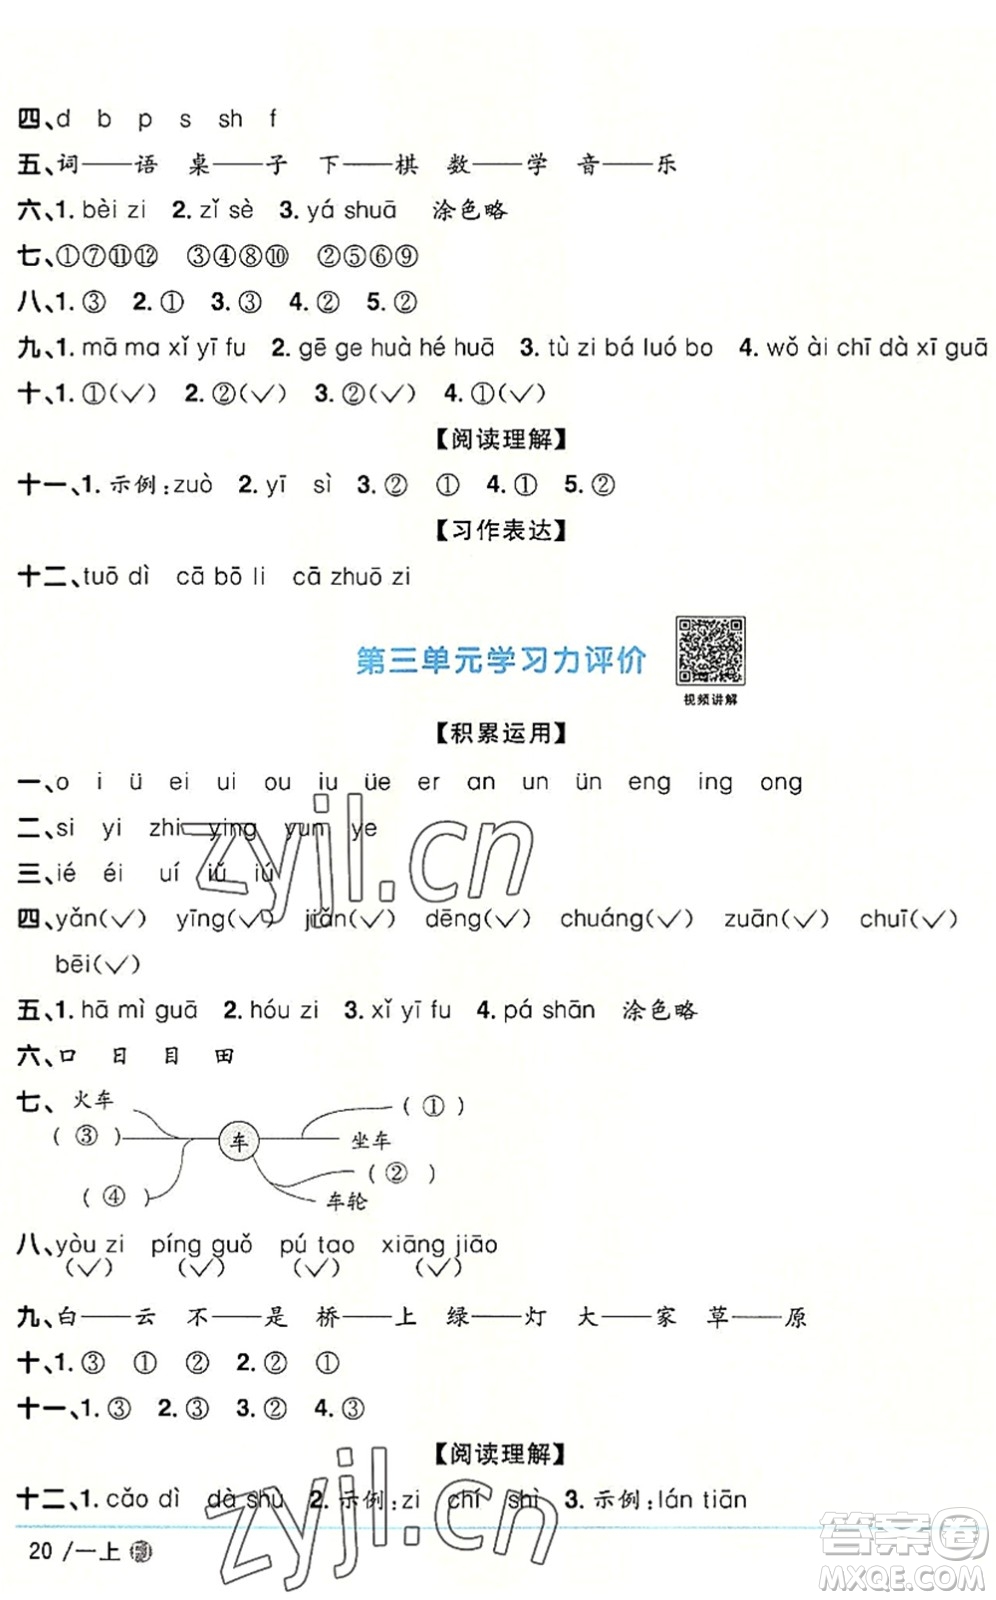 四、d b p s sh f
五、词——语 桌——子 下——棋 数——学 音——乐
六、1. bèi zi 2. zǐ sè 3. yá shuā 涂色略
七、①⑦⑪⑫ ③④⑧⑩ ②⑤⑥⑨
八、1. ③ 2. ① 3. ③ 4. ② 5. ②
九、1. mā ma xǐ yī fu 2. gē ge huà hé huā 3. tù zi bá luó bo 4. wǒ ài chī dà xī guā
十、1. ①(✓) 2. ②(✓) 3. ②(✓) 4. ①(✓)
【阅读理解】
十一、1. 示例:zuò 2. yī sì 3. ② ① 4. ① 5. ②
【习作表达】
十二、tuō dì cā bō li cā zhuō zi
第三单元学习力评价
视频讲解
【积累运用】
一、o i ü ei ui ou iu üe er an un ün eng ing ong
二、si yi zhi ying yun ye
三、ié éi uí iǔ iú
四、yǎn(✓) yīng(✓) jiǎn(✓) dēng(✓) chuáng(✓) zuān(✓) chuī(✓)
bēi(✓)
五、1. hā mì guā 2. hóu zi 3. xǐ yī fu 4. pá shān 涂色略
六、口 日 目 田
七、火车 (①)
(③) 车 坐车
(④) (②)
车轮
八、yòu zi píng guǒ pú tao xiāng jiāo
(✓) (✓) (✓) (✓)
九、白——云 不——是 桥——上 绿——灯 大——家 草——原
十、1. ③ ① ② 2. ② ①
十一、1. ③ 2. ③ 3. ② 4. ③
【阅读理解】
十二、1. cǎo dì dà shù 2. 示例:zi chí shì 3. 示例:lán tiān
20 /一上
zyjl.cn
zyjl.cn
答案圈
MXQE.COM